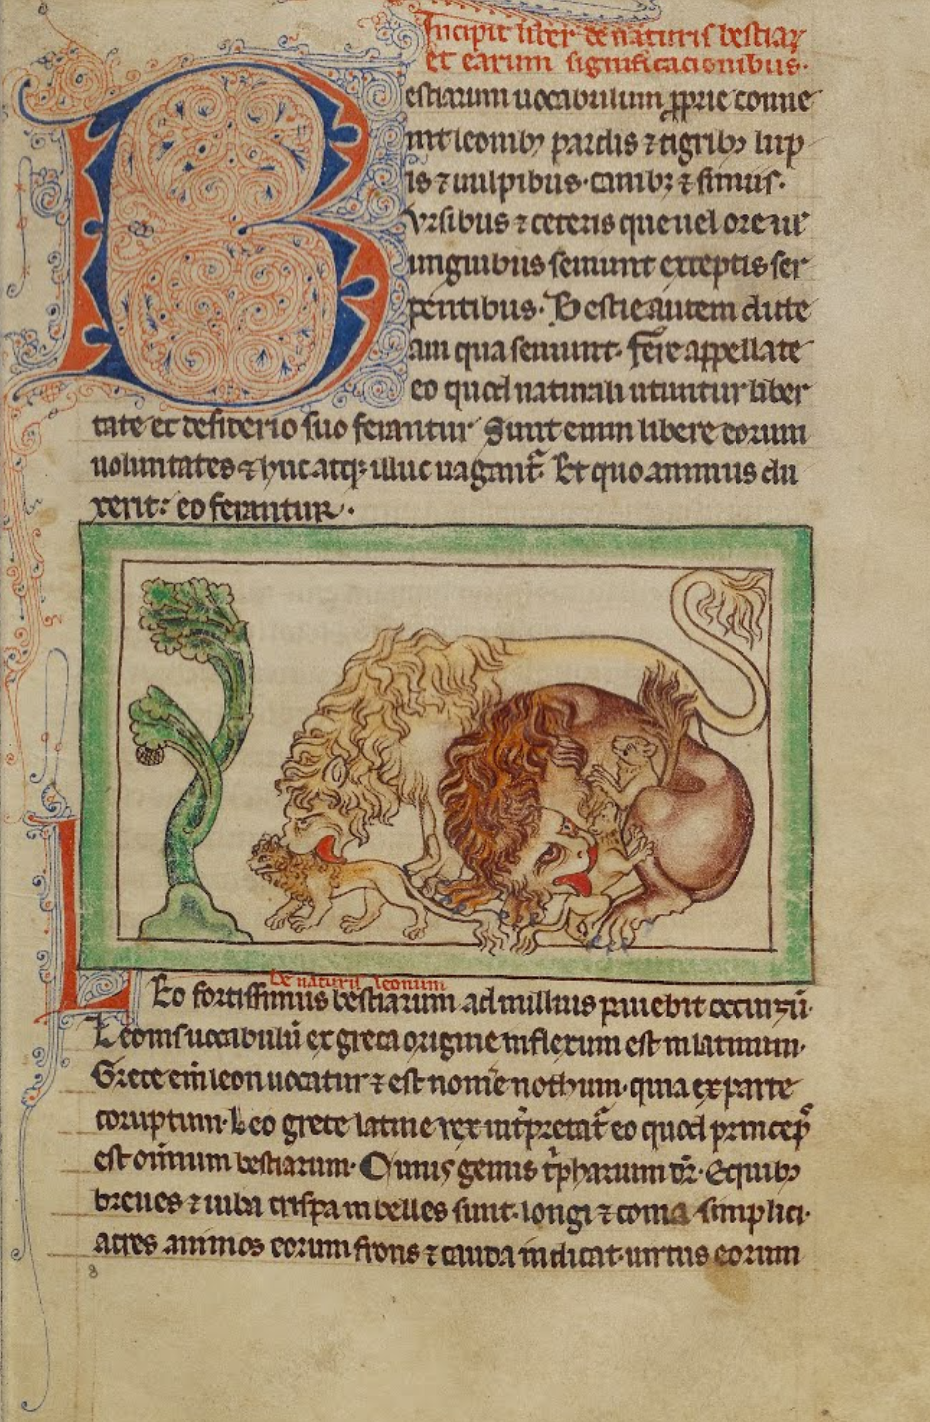 Incipit liber de naturis bestiaꝝ
et earum significacionibus.
Bestiarum uocabulum ꝓprie conue
nit leonibꝰ pardis ⁊ tigribꝰ lup
is ⁊ uulpibus. canibꝫ ⁊ simiis.
Vrsibus ⁊ ceteris que uel ore uel
unguibus seuiunt exceptis ser
pentibus. Bestie autem dicte
am qua seuiunt. fere appellate
eo quod naturali utuntur liber
tate et desiderio suo ferantur Sunt enim libere eorum
uoluntates ⁊ huc atqꝫ illuc uagant̃ Et quo animus du
xerit: eo ferantur.
De naturis leonum
Leo fortissimus bestiarum ad nullius pauebit occursū.
Leonis uocabulū ex greca origine inflexum est in latinum.
Grece eni̅ leon uocatur ⁊ est nom̅e nothum. quia ex parte
coruptum. Leo grece latine rex int̕pretat̃ eo quod princeps
est omniū bestiarum. Cuius genus t̕phariū dr̅. Equibꝰ
breues ⁊ iuba crispa inbelles sunt. longi ⁊ coma simplici.
acres animos eorum frons ⁊ cauda indicat. uirtus eorum